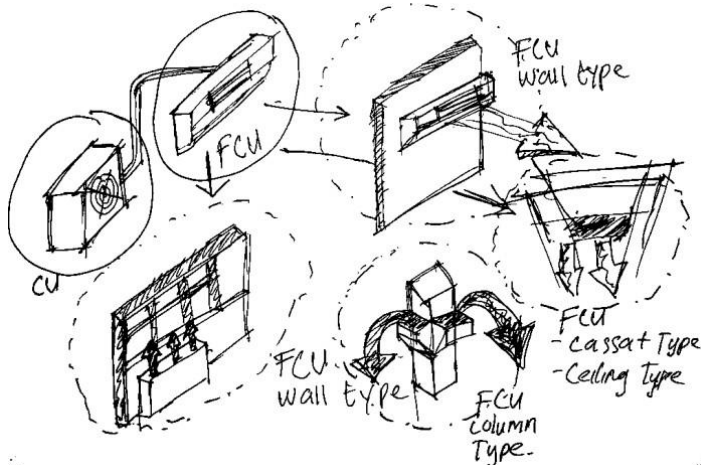 FCU
wall type
FCU
CU
FCU
wall type
FCU
column
Type.
FCU
- Cassat Type
- Ceiling Type